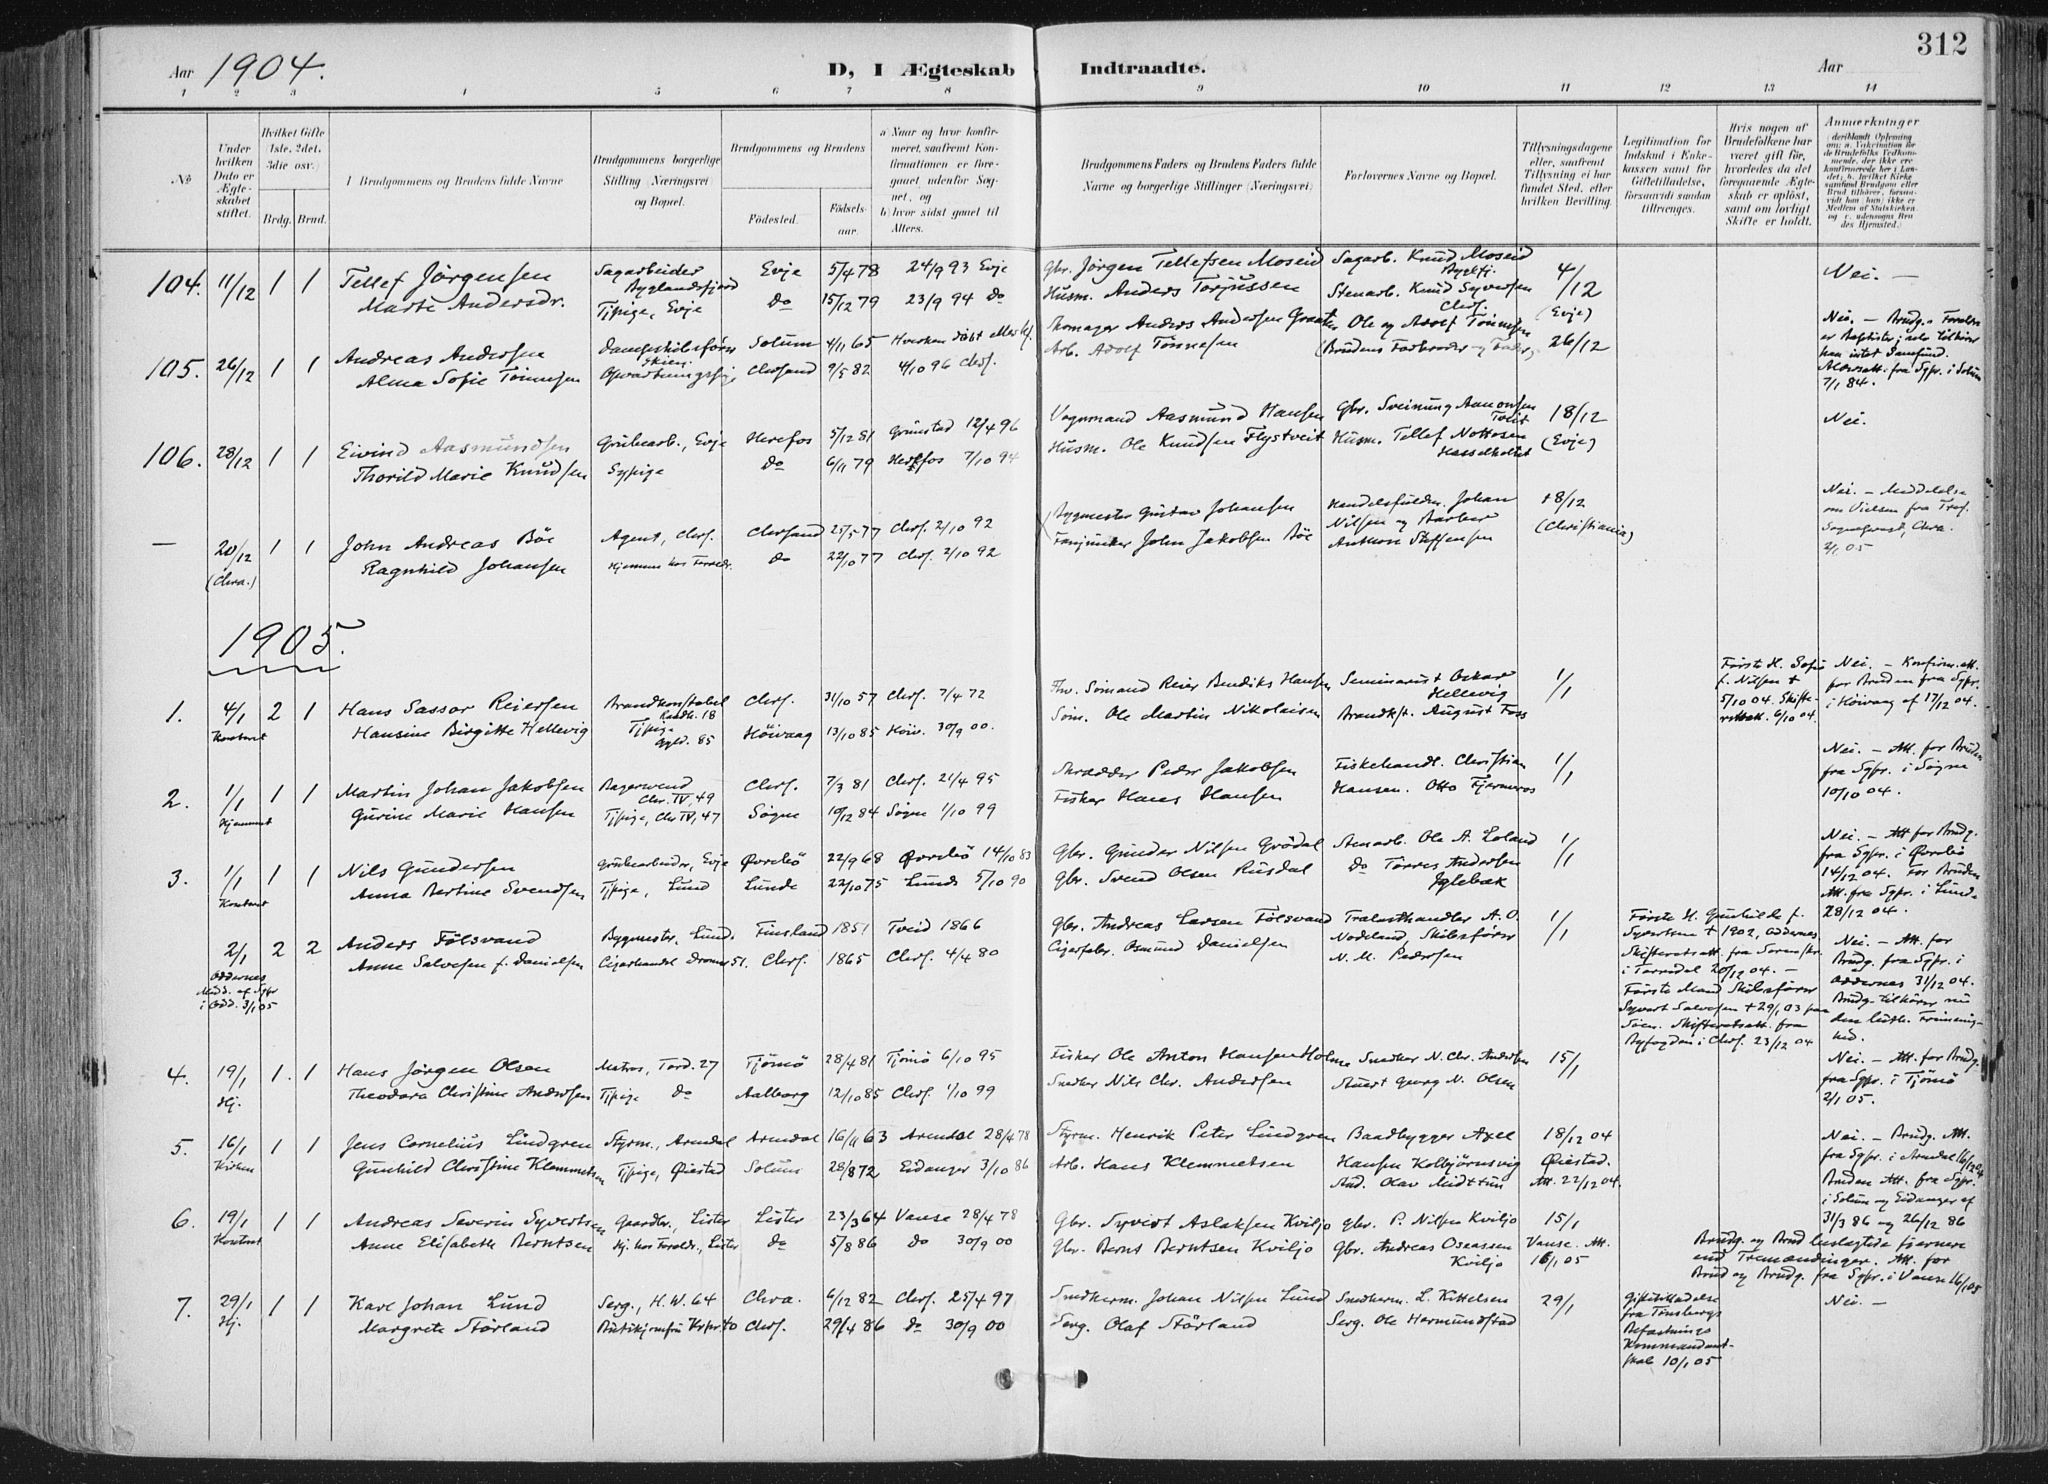 Aar 1904.
D, I Ægteskab Indtraadte.
Aar
312
1 2 3 4 5 6 7 8 9 10 11 12 13 14
No
Under hvilken Dato er Ægteskabet stiftet.
Hvilket Gifte (1ste, 2det, 3die osv.)
Brdg. Brud.
I Brudgommens og Brudens fulde Navne
Brudgommens borgerlige Stilling (Næringsvei) og Bopæl.
Brudgommens og Brudens
Fødested.
Fødselsaar.
a) Naar og hvor konfirmeret, saafremt Konfirmationen er foregaaet udenfor Sognet, og
b) hvor sidst gaaet til Alters.
Brudgommens Faders og Brudens Faders fulde Navne og borgerlige Stillinger (Næringsvei)
Forlovernes Navne og Bopæl.
Tillysningsdagene eller, saafremt Tillysning ei har fundet Sted, efter hvilken Bevilling.
Legitimation for Indskud i Enkekassen samt for Giftetilladelse, forsaavidt saadan tiltrænges.
Hvis nogen af Brudefolkene har været gift før, hvorledes da det foregaaende Ægteskab er opløst, samt om lovligt Skifte er holdt.
Anmærkninger
104. 11/12 1 1 Tellef Jörgensen Sagarbeider Byglandsfjord Evje 5/4 78 24/9 93 Evje Gbr. Jörgen Tellefsen Moseid Sagarb. Knud Moseid Byglfj. 4/12 Nei. —
Marte Andersdr. Tjpige, Evje do 15/12 79 23/9 94 do Husm. Anders Torjussen Stenarb. Knud Syversen Chrs. (Evje)
105. 26/12 1 1 Andreas Andersen Dampskibsförer Skien Solum 4/11 65 Skomager Anders Andersen Ole og Adolf Tönnesen 26/12
Alma Sofie Tönnesen Opvartningspige Chrsand 9/5 82 4/10 96 Chrs. Arb. Adolf Tönnesen (Brudens Farbroder og Fader)
Nei. — Brudg.s Forældre er Baptister; selv tilhörer han intet Samfund. fra Sgpr. i Solum 7/1 84.
106. 28/12 1 1 Eivind Aasmundsen Grubearb., Evje Herefos 5/12 81 Grimstad 12/4 96 Vognmand Aasmund Hansen Gbr. Sveinung Aanonsen Tveit 18/12 Nei.
Thorild Marie Knudsen Sypige do 6/11 79 Herefos 7/10 94 Husm. Ole Knudsen Flystveit Husm. Tellef (Evje)
— 20/12 1 1 John Andreas Böe Agent, Chrs. Chrsand 25/5 77 Chrs. 2/10 92 Bygmester Gustav Johansen Handelsfuldm. Johan Nilsen og Barber 18/12
(Chra.) Ragnhild Johansen Hjemme hos Foræld. do 22/10 77 Chrs. 2/10 92 John Jakobsen Böe Anthon Steffensen (Christiania)
Nei. — Meddelelse om Vielsen fra Chra. 2/1 05
1905.
1. 4/1 2 1 Hans Sassor Reiersen Brandkonstabel Chrs. 31/10 57 Chrs. 7/4 72 Sömand Reier Bendiks Hansen Seminarist Oskar Hellevig 1/1
Kontoret Hansine Birgitte Hellevig Tjpige Gyld. 85 Höivaag 13/10 85 Höiv. 30/9 00. Söm. Ole Martin Nikolaisen Brandkst. August Foss
Förste H. Sofie f. Nilsen + 5/10 04. Skifteretsatt. 6/10 04.
Nei. — Konfirm.att. for Bruden fra Sgpr. i Höivaag af 17/12 04.
2. 1/1 1 1 Martin Johan Jakobsen Bagersvend Chr. IV, 49 Chrs. 7/3 81 Chrs. 21/4 95 Skrædder Peder Jakobsen Fiskehandl. Christian 1/1
Hjemmet Gurine Marie Hansen Tjpige, Chr IV, 47 Søgne 10/12 84 Søgne 1/10 99 Fisker Hans Hansen Hansen. Otto Fjermeros
Nei. — Att. for Bruden fra Sgpr. i Søgne 10/10 04.
3. 1/1 1 1 Nils Gundersen Grubearbeider, Evje Øvrebö 22/9 68 Øvrebö 14/10 83 Gbr. Gunder Nilsen Grödal Stenarb. Ole A. Loland 1/1
Kontoret Anna Bertine Svendsen Tjpige, Lund Lunde 22/10 75 Lunde 5/10 90 Gbr. Svend Olsen Rusdal do Torres Andersen Iglebæk
Nei. — Att for Brudg. fra Sgpr. i Øvrebö 14/12 04. For Bruden Att. fra Sgpr. i Lunde 28/12 04.
2/1 2 2 Anders Fölsvand Bygmester, Lund. Finsland 1851 Tveid 1866 Gbr. Andreas Larsen Fölsvand Trælasthandler A. O. Nodeland, Skibsförer 1/1
Oddernes Medd. af Sgpr i Odd. 3/1 05 Anne Salvesen f. Danielsen Cigarhandel Dronn. 51. Chrs. 1865 Chrs. 4/4 80 Cigarfabr. Osmund Danielsen N. M. Pedersen
Förste H. Gunhilde f. Syvertsen + 1902, Oddernes Skifteretsatt. fra Sorenskr. i Torredal 20/12 04. — Förste Mand Skibsförer Syvert Salvesen + 29/1 03 paa Söen. Skifteretsatt. fra Byfogden i Chrs. 23/12 04
Nei. — Att. for Brudg. fra Sgpr. i Oddernes 31/12 04. Brudg. tilhörer nu den luth. Frimenighed.
4. 19/1 1. 1 Hans Jörgen Olsen Matros, Tord. 27 Tjömö 28/4 81 Tjömö 6/10 95 Fisker Ole Anton Hansen Holme Snedker N. Chr. Andersen 15/1
Hj. Theodora Christine Andersen Tjpige do Aalborg 12/10 85 Chrs. 1/10 99 Snedker Nils Chr. Andersen Stuert Georg N. Olsen
Nei. — Att. for Brudg. fra Sgpr. i Tjömö 2/1 05.
5. 16/1 1 1 Jens Cornelius Lindgren Styrm., Arendal Arendal 16/11 63 Arendal 28/4 78 Styrm. Henrik Peter Lindgren Baadbygger Axel 18/12 04
Kirken Gunhild Christine Klemmetsen Tjpige, Øiestad Solum 28/8 72 Eidanger 3/10 86 Arb. Hans Klemmetsen Hansen Kolbjörnsvig Øiestad.
And. Olav Midttun Att. 22/12 04.
Nei. — Brudg. Att. fra Sgpr. i Arendal 16/12 04 Bruden Att. fra Sgpr. i Solum og Eidanger af 31/3 86 og 26/12 86
6. 19/1 1 1 Andreas Severin Syvertsen Gaardbr., Lister Lister 23/3 64 Vanse 28/4 78 Gbr. Syvert Aslaksen Kviljo Gbr. P. Nilsen Kviljo 15/1
Kontoret Anne Elisabeth Berntsen Hj. hos Foræld., Lister do 5/8 86 do 30/9 00 Gbr. Bernt Berntsen Kviljo Gbr. Andreas Oseassen Kviljo Vanse. Att. 16/1 05
Brudg. og Brud beslægtede fjernere end Tremændinger. Att. for Brud og Brudg. fra Sgpr. i Vanse 16/1 05
7. 29/1 1 1 Karl Johan Lund Serg., H. W. 64 Chra. 6/12 82 Chrs. 25/4 97 Snedkerm. Johan Nilsen Lund Snedkerm. L. Kittelsen 29/1 Nei. —
Hj. Margrete Störland Chrs. 29/4 86 do 30/9 00 Serg. Olaf Störland Serg. Ole Hermundstad
Giftetilladelse fra Tönsbergs Befæstnings Kommandantskab 10/1 05